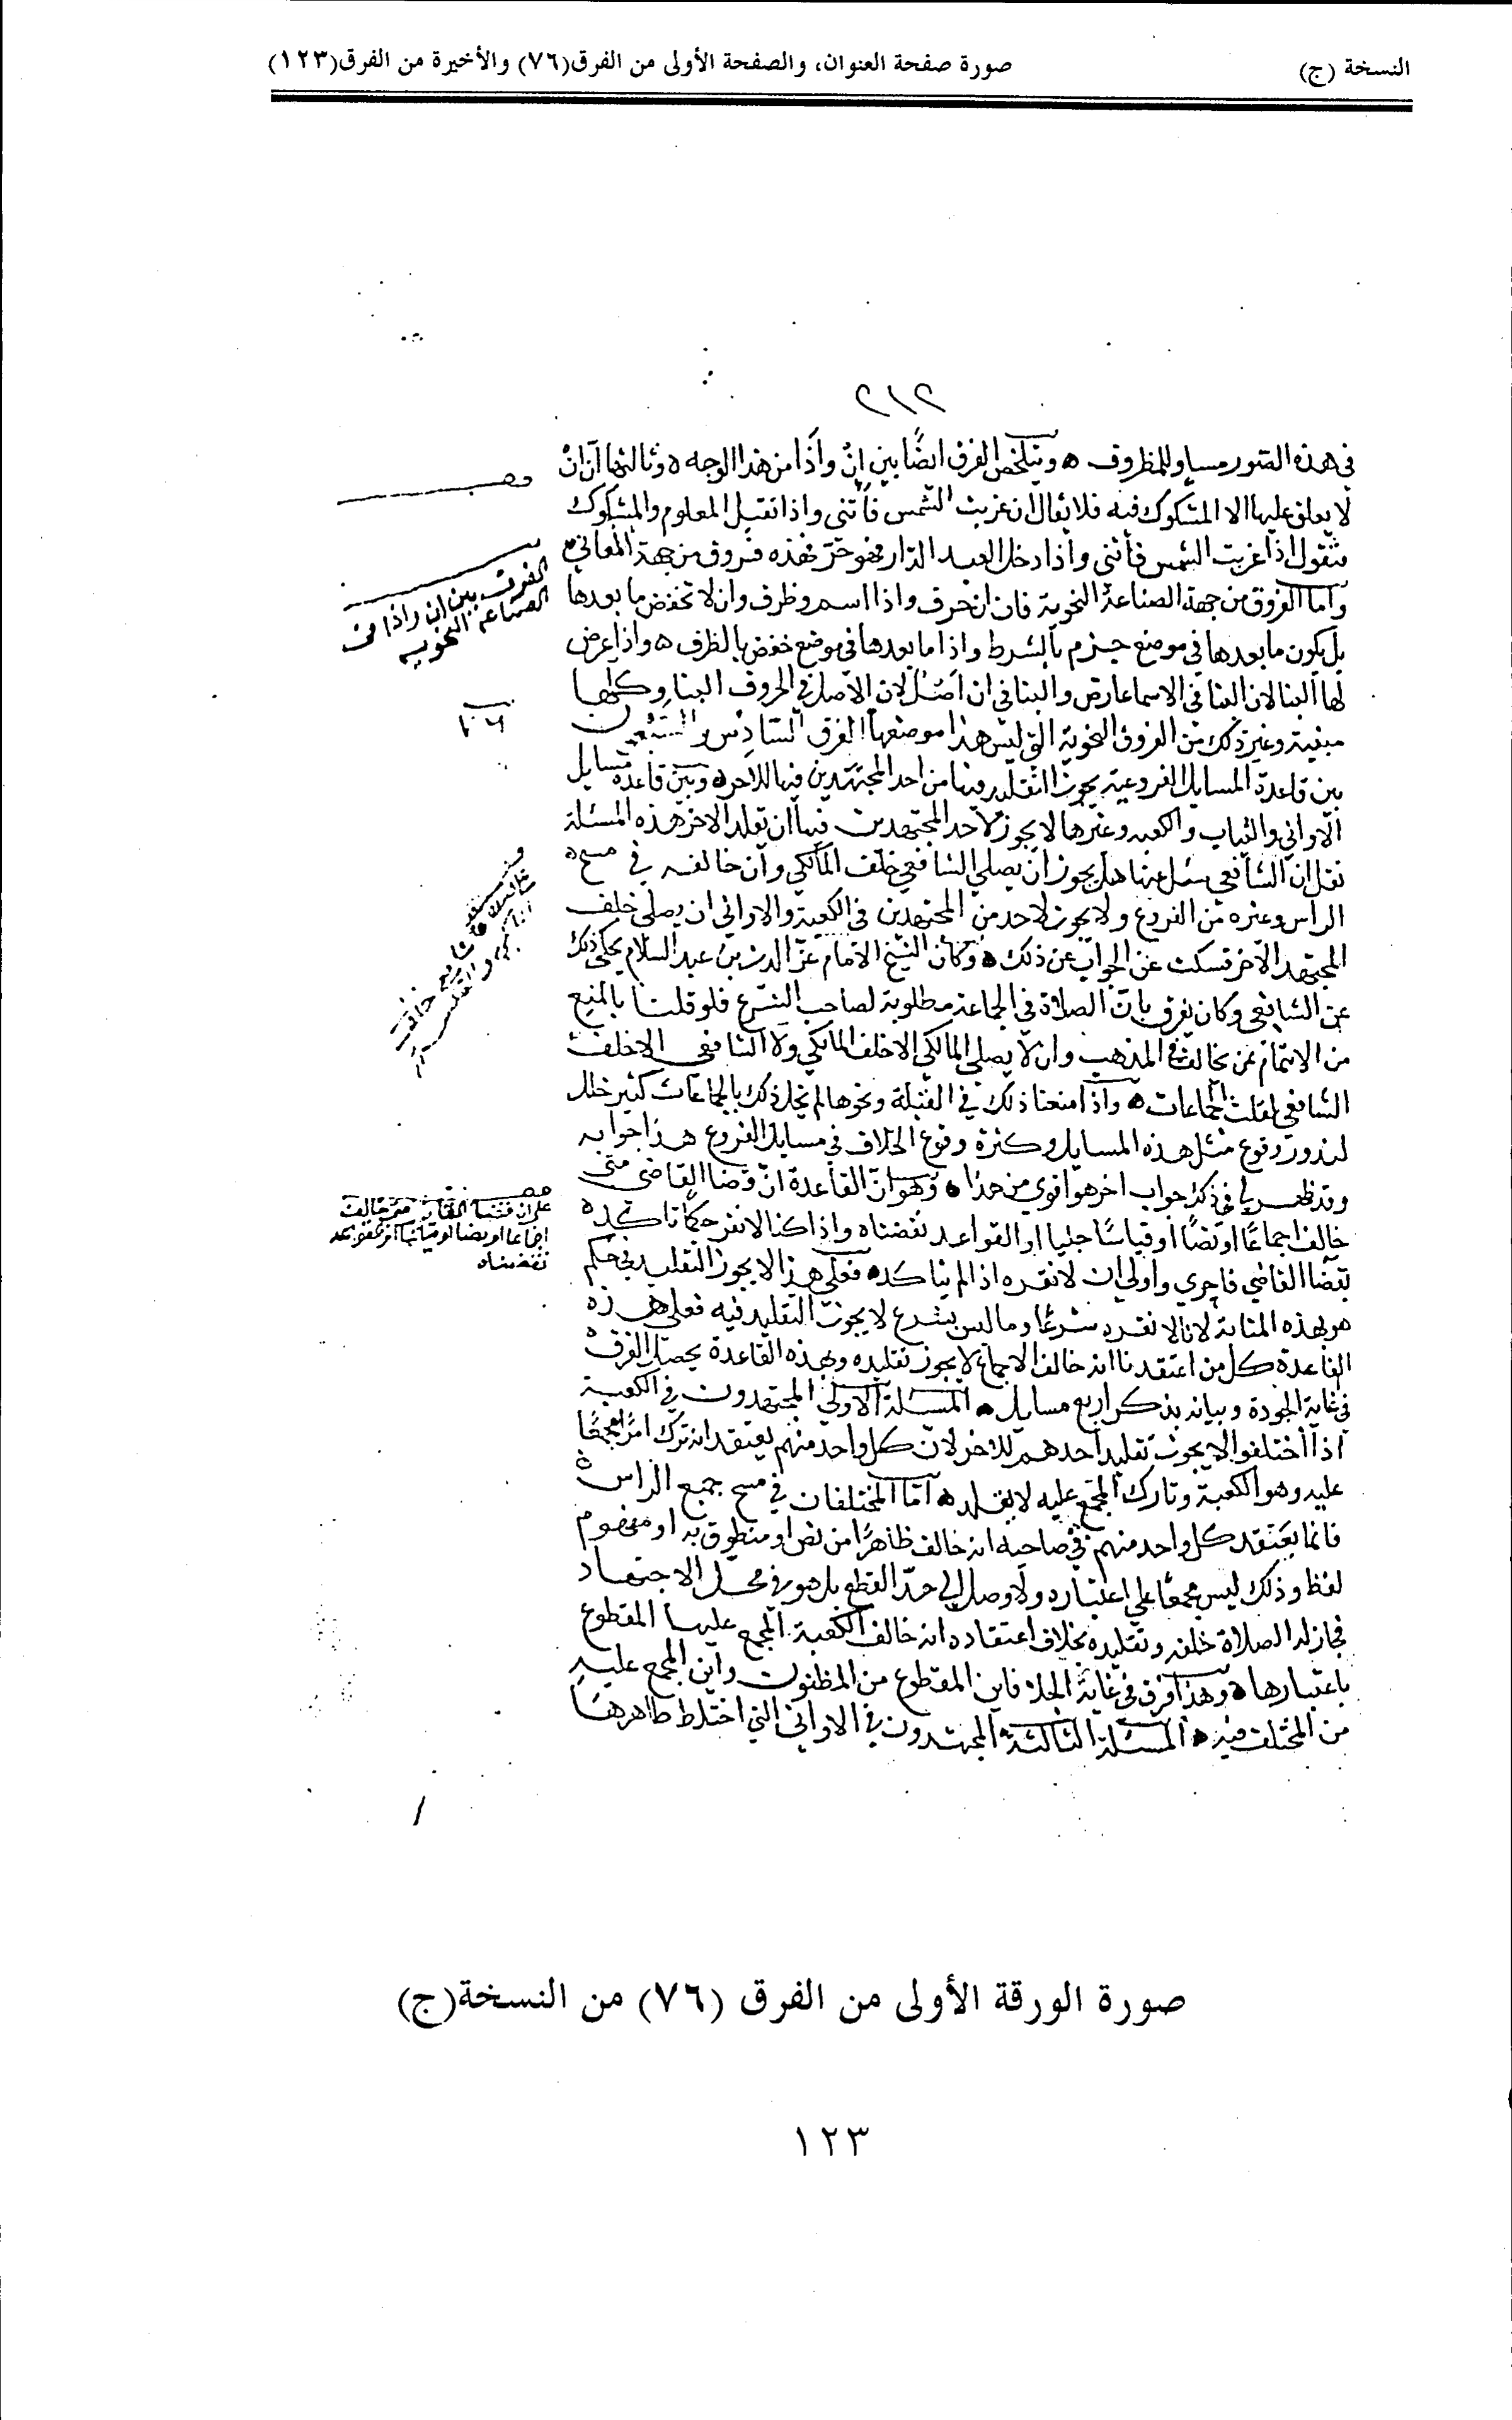 النسخة (ج)
صورة صفحة العنوان، والصفحة الأولى من الفرق(٧٦) والأخيرة من الفرق(١٢٣)
٢١٢
في هذه الصور مساو للمظروف ه ويتلخص الفرق ايضًا بين إنْ واذا من هذا الوجه ه وثالثها أن انْ
لا يعلق عليها الا المشكوك فيه فلا يقال ان غربت الشمس فأتني واذا تقبل المعلوم والمشكوك
فتقول اذا غربت الشمس فأتني واذا دخل العبد الدار فهو حر فهذه فروق من جهة المعاني ه
واما الفروق من جهة الصناعة النحوية فان ان حرف واذا اسم وظرف وان لا تخفض ما بعدها
بل يكون ما بعدها في موضع جزم بالشرط واذا ما بعدها في موضع خفض بالظرف ه واذا عرض
لها البنا لان البنا في الاسما عارض والبنا في ان اصل لان الاصل في الحروف البنا وكلها
مبنية وغير ذلك من الفروق النحوية التي ليس هذا موضعها الفرق السادس والسبعون
بين قاعدة المسايل الفروعية يجوز التقليد فيها من احد المجتهدين فيها للاخر ه وبين قاعدة مسايل
الاواني والثياب والكعبه وغيرها لا يجوز لاحد المجتهدين فيها ان يقلد الاخر هذه المسئلة
نقل ان الشافعي سئل عنها هل يجوز ان يصلي الشافعي خلف المالكي وان خالفه في مسح ه
الراس وغيره من الفروع ولا يجوز لاحد من المجتهدين في الكعبة والاواني ان يصلي خلف
المجتهد الآخر فسكت عن الجواب عن ذلك ه وكان الشيخ الامام عز الدين بن عبد السلام يحكي ذلك
عن الشافعي وكان يفرق بان الصلاة في الجماعة مطلوبة لصاحب الشرع فلو قلنا بالمنع
من الائتمام بمن يخالف في المذهب وان لا يصلي المالكي الا خلف المالكي ولا الشافعي الا خلف
الشافعي لقلت الجماعات ه واذا منعنا ذلك في القبلة ونحوها لم يخل ذلك بالجماعات كثير خلل
لندور وقوع مثل هذه المسايل وكثرة وقوع الخلاف في مسايل الفروع هذا جوابه
وقد ظهر لي في ذلك جواب اخر هو اقوي من هذا ه وهو ان القاعدة ان قضا القاضي متى
خالف اجماعًا او نصًا او قياسًا جليا او القواعد نقضناه واذا كنا لا نقر حكمًا تاكد ه
بقضا القاضي فاحري واولي ان لا نقره اذا لم يتاكد ه فعلي هذا لا يجوز التقليد في حكم
هو بهذه المثابة لانا لا نقره شرعًا وما ليس بشرع لا يجوز التقليد فيه فعلي هذه
القاعدة كل من اعتقدنا انه خالف الاجماع لا يجوز تقليده وبهذه القاعدة يحصل الفرق ه
في غاية الجودة وبيانه بذكر اربع مسايل ه المسئلة الاولي المجتهدون في الكعبة
اذا اختلفوا لا يجوز تقليد احدهم للاخر لان كل واحد منهم يعتقد انه ترك امرًا مجمعًا
عليه وهو الكعبة وتارك المجمع عليه لا يقلد ه اما المختلفان في مسح جميع الراس ه
فانما يعتقد كل واحد منهم في صاحبه انه خالف ظاهرًا من نص او منطوق به او مفهوم
لفظ وذلك ليس مجمعًا علي اعتباره ولا وصل الي حد القطع بل هو في محل الاجتهاد
فجاز له الصلاة خلفه وتقليده بخلاف اعتقاده انه خالف الكعبة المجمع عليها المقطوع
باعتبارها ه وهذا فرق في غاية الجلا فاين المقطوع من المظنون واين المجمع عليه
من المختلف فيه ه المسئلة الثالثة المجتهدون في الاواني التي اختلط طاهرها
الفرق بين ان واذا من
الصناعة النحويه
على ان قضا القاضي متى خالف
اجماعا او نصا او قياسا
نقضناه
صورة الورقة الأولى من الفرق (٧٦) من النسخة(ج)
١٢٣